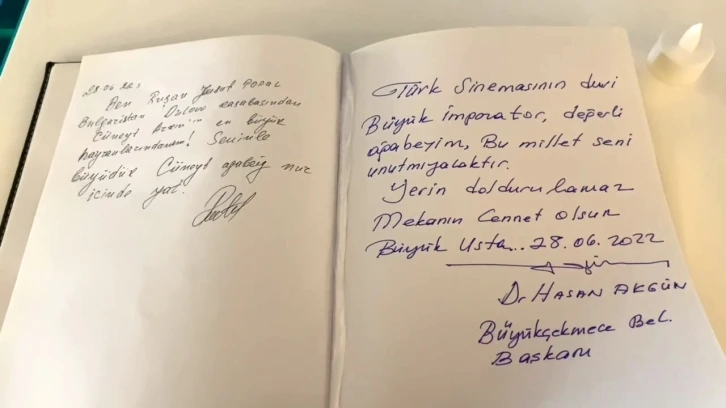 28 06 22
Ben Ruşan Yusuf
Bulgaristan kasabasından
Cüneyt Arkın'ın en büyük
hayranlarındanım! Seninle
büyüdük Cüneyt ağabey nur
içinde yat.
Türk Sinemasının devi
Büyük İmparator, değerli
ağabeyim, Bu millet seni
unutmıyacaktır.
Yerin doldurulamaz
Mekanın Cennet Olsun
Büyük Usta.. 28.06.2022
Dr HASAN AKGÜN
Büyükçekmece Bel.
Başkanı